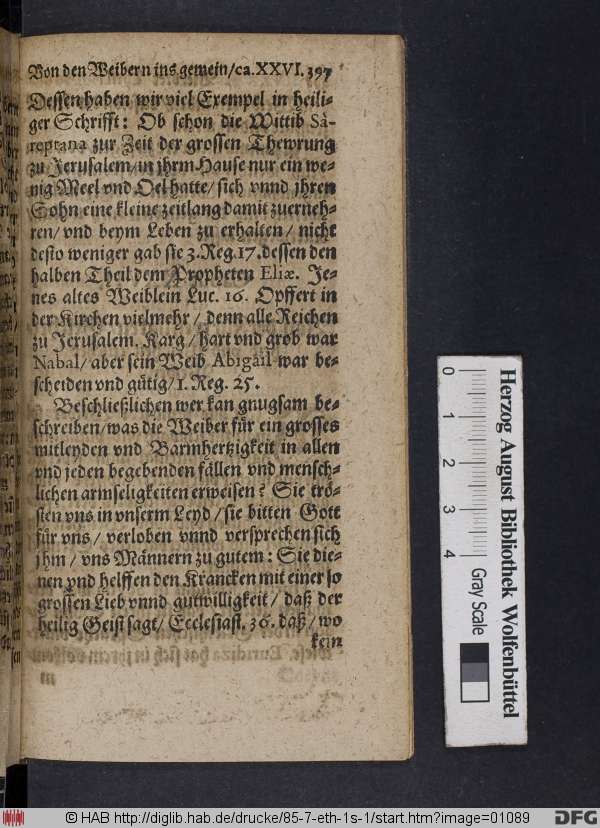 Von den Weibern ins gemein/ca.XXVI. 397
Dessen haben wir viel Exempel in heili-
ger Schrifft: Ob schon die Wittib Sa-
reptana zur Zeit der grossen Thewrung
zu Jerusalem/in jhrm Hause nur ein we-
nig Meel vnd Oel hatte/ sich vnnd jhren
Sohn eine kleine zeitlang damit zuerneh-
ren/ vnd beym Leben zu erhalten/ nicht
desto weniger gab sie 3.Reg.17.dessen den
halben Theil dem Propheten Eliæ. Je-
nes altes Weiblein Luc. 16. Opffert in
der Kirchen vielmehr/ denn alle Reichen
zu Jerusalem. Karg/ hart vnd grob war
Nabal/ aber sein Weib Abigail war be-
scheiden vnd gütig/1. Reg. 25.
Beschließlichen wer kan gnugsam be-
schreiben/was die Weiber für ein grosses
mitleyden vnd Barmhertzigkeit in allen
vnd jeden begebenden fällen vnd mensch-
lichen armseligkeiten erweisen? Sie trö-
sten vns in vnserm Leyd/sie bitten Gott
für vns/ verloben vnnd versprechen sich
jhm/ vns Männern zu gutem: Sie die-
nen vnd helffen den Krancken mit einer so
grossen Lieb vnnd gutwilligkeit/ daß der
heilig Geist sagt/ Ecclesiast. 36. daß/ wo
kein
0
1
2
3
4
Gray Scale
Herzog August Bibliothek Wolfenbüttel
© HAB http://diglib.hab.de/drucke/85-7-eth-1s-1/start.htm?image=01089
DFG